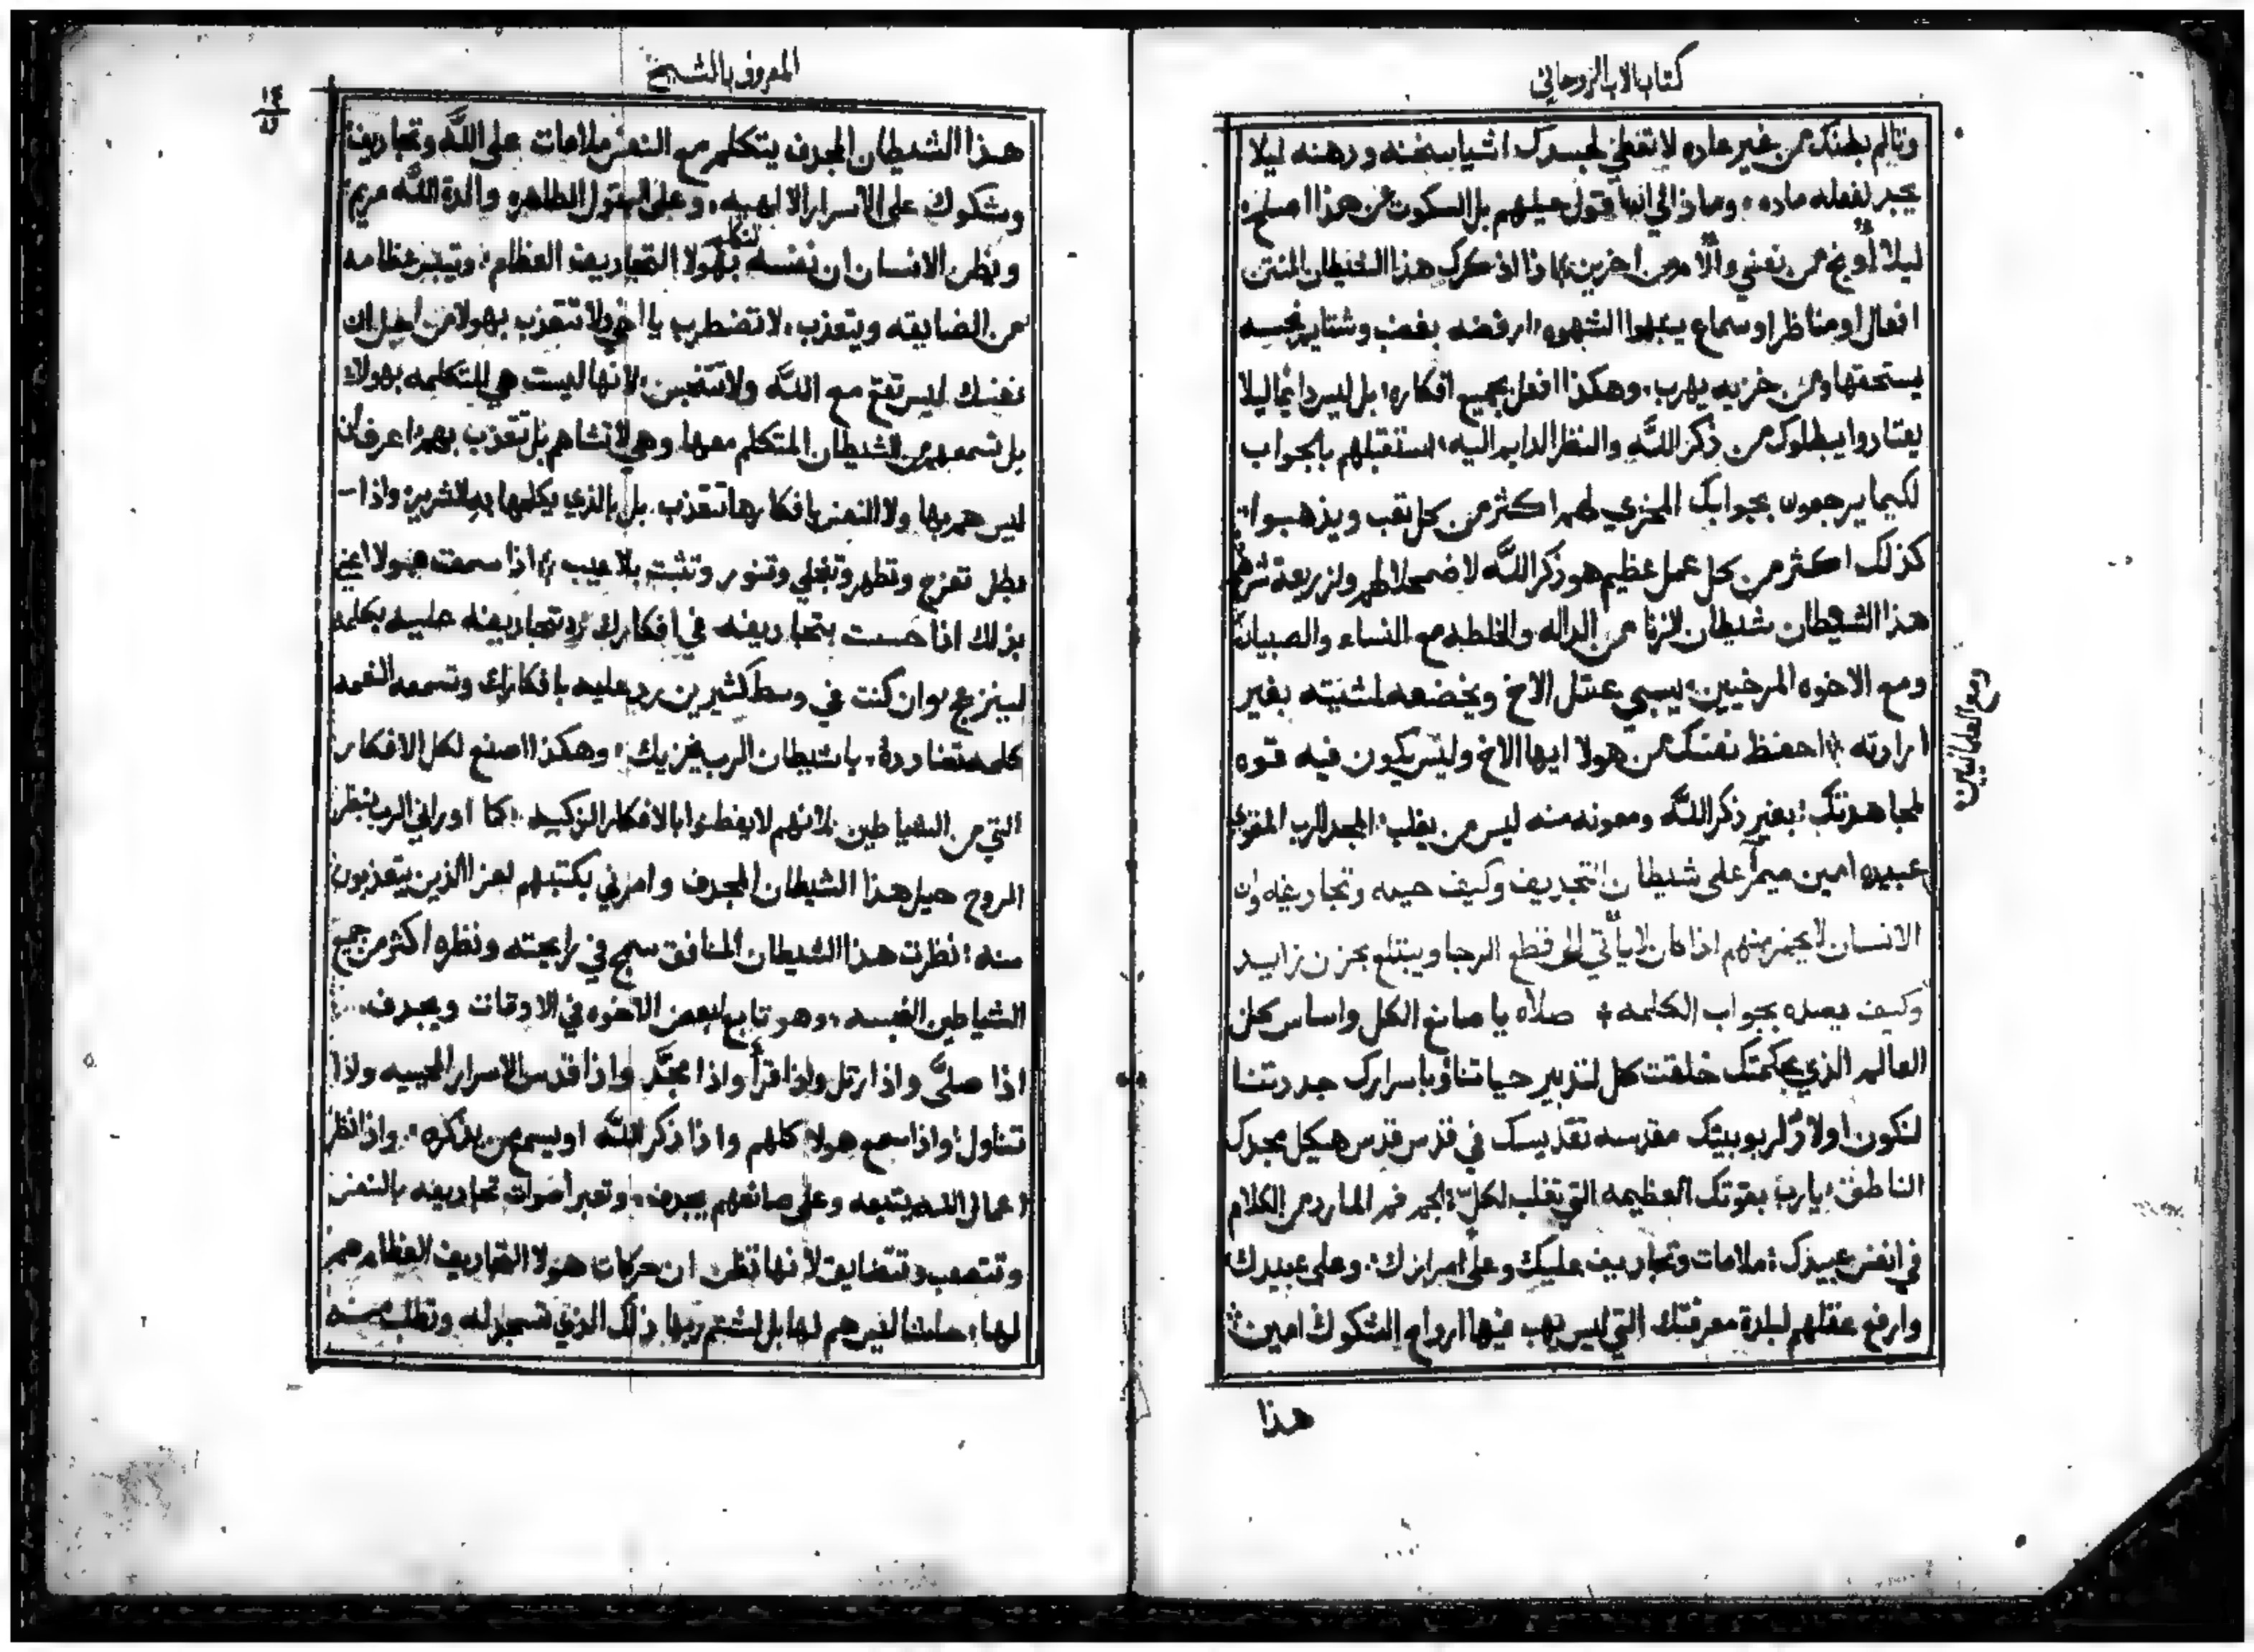 كتاب الاب الروحاني
وتالم بطنك من غير عاده لا تفعل لجسدك اشيا سخنه ودهنه ليلا
يجد لفعله ماده، وماذا لي انا قول حيلهم بل السكوت عن هذا اصلح
ليلا أوبخ من نفسي والا من اخرين، اذا اذكرك هذا الشيطان المنتن
افعال او مناظر او سماع يتبعها الشهوه، ارفضه بغضب وشتايم نجسه
يستحقها ومن خزيه يهرب، وهكذا افعل بجميع افكاره، بل ليس دايما ليلا
يعتادوا يبطلوك من ذكر الله والنظر الدايم اليه، استقبلهم بالجواب
لكيما يرجعون بجوابك المخزي لهم اكثر من كل تعب ويذهبوا
كذلك اكثر من كل عمل عظيم هو ذكر الله لاضمحلالهم ولزريعة شرهم
هذا الشيطان شيطان الزنا من الداله والخلطه مع النساء والصبيان
ومع الاخوه المرخيين، يسبي عقل الاخ ويخضعه لمشيته بغير
ومع العلمانيين
ارادته، احفظ نفسك من هولا ايها الاخ وليس يكون فيه قوه
لمجاهدتك، بغير ذكر الله ومعونه منه ليس من يغلب، المجد للرب المقوي
عبيده امين ميمر على شيطان التجديف وكيف حيله وتجاديفه وان
الانسان لا يحزن منهم اذا كان لا ياتي الى قطع الرجا ويبتلع بحزن زايد
وكيف يصده بجواب الكلمه ✢ صلاه يا صانع الكل واساس كل
العالم الذي بحكمتك خلقت كل لتدبير حياتنا وباسرارك جددتنا
لنكون اولاد لربوبيتك مقدسه تقديسك في قدس قدس هيكل مجدك
الناطق، يا رب بقوتك العظيمه التي تغلب الكل، الجم فم المارد من الكلام
في انفس عبيدك، ملامات وتجاديف عليك وعلى اسرارك، وعلى عبيدك
وارفع عقلهم لبلدة معرفتك التي ليس يهب فيها ارواح الشكوك امين
هذا
المعروف بالشيخ
هذا الشيطان المجدف يتكلم مع النفس ملامات على الله وتجاديف
وشكوك على الاسرار الالهيه، وعلى البتول الطاهره والدة الله مريم
ويظن الانسان ان نفسه تتكلم بهولا التجاديف العظام، وتيبس عظامه
من الضايقه ويتعذب، لا تضطرب يا اخي ولا تتعذب بهولا من اجل ان
نفسك ليس تقع مع الله ولا تتنجس، لانها ليست هي المتكلمه بهولا
بل تسمعهم من الشيطان المتكلم معها، وهي لا تشاهم بل تتعذب بهم، اعرف ان
ليس هم بها ولا النفس بافكارها تتعذب، بل بالذي يكلمها بهلاشرين واذا
بطل تفرح وتطهر وتنجلي وتنور وتثبت بلا عيب، اذا سمعت هولا اعني
بذلك اذا حسست بتجاديفه في افكارك رد تجاديفه عليه بكلمه
لينزعج، وان كنت في وسط كثيرين رد عليه بافكارك وتسمعه النغمه
كلمه مضادده، يا شيطان الرب يخزيك، وهكذا اصنع لكل الافكار
التي من الشياطين لانهم لا يفطنوا بالافكار الزكيه، كما اوراني الرب بنظر
الروح حيل هذا الشيطان المجدف وامرني بكتبهم لعزا الذين يتعذبون
منه، نظرت هذا الشيطان المنافق سمج في رايحته ونظره اكثر من جميع
الشياطين النجسه، وهو تابع لبعض الاخوه في الاوقات ويجدف
اذا صلى واذا رتل واذا قرأ واذا مجد واذا قدس الاسرار المحييه واذا
تناول واذا سمع هولا كلهم واذا ذكر الله او يسمع من يذكره، واذا نظر
اعمال الله يتبعه وعلى صانعهم يجدف، وتعبر أصوات تجاديفه بالنفس
وتتصعب وتتضايق لانها تظن ان حركات هولا التجاديف العظام هم
لها، حاشا ليس هم لها بل لشتم ربها ذلك الذي تسجد له وتطلب منه